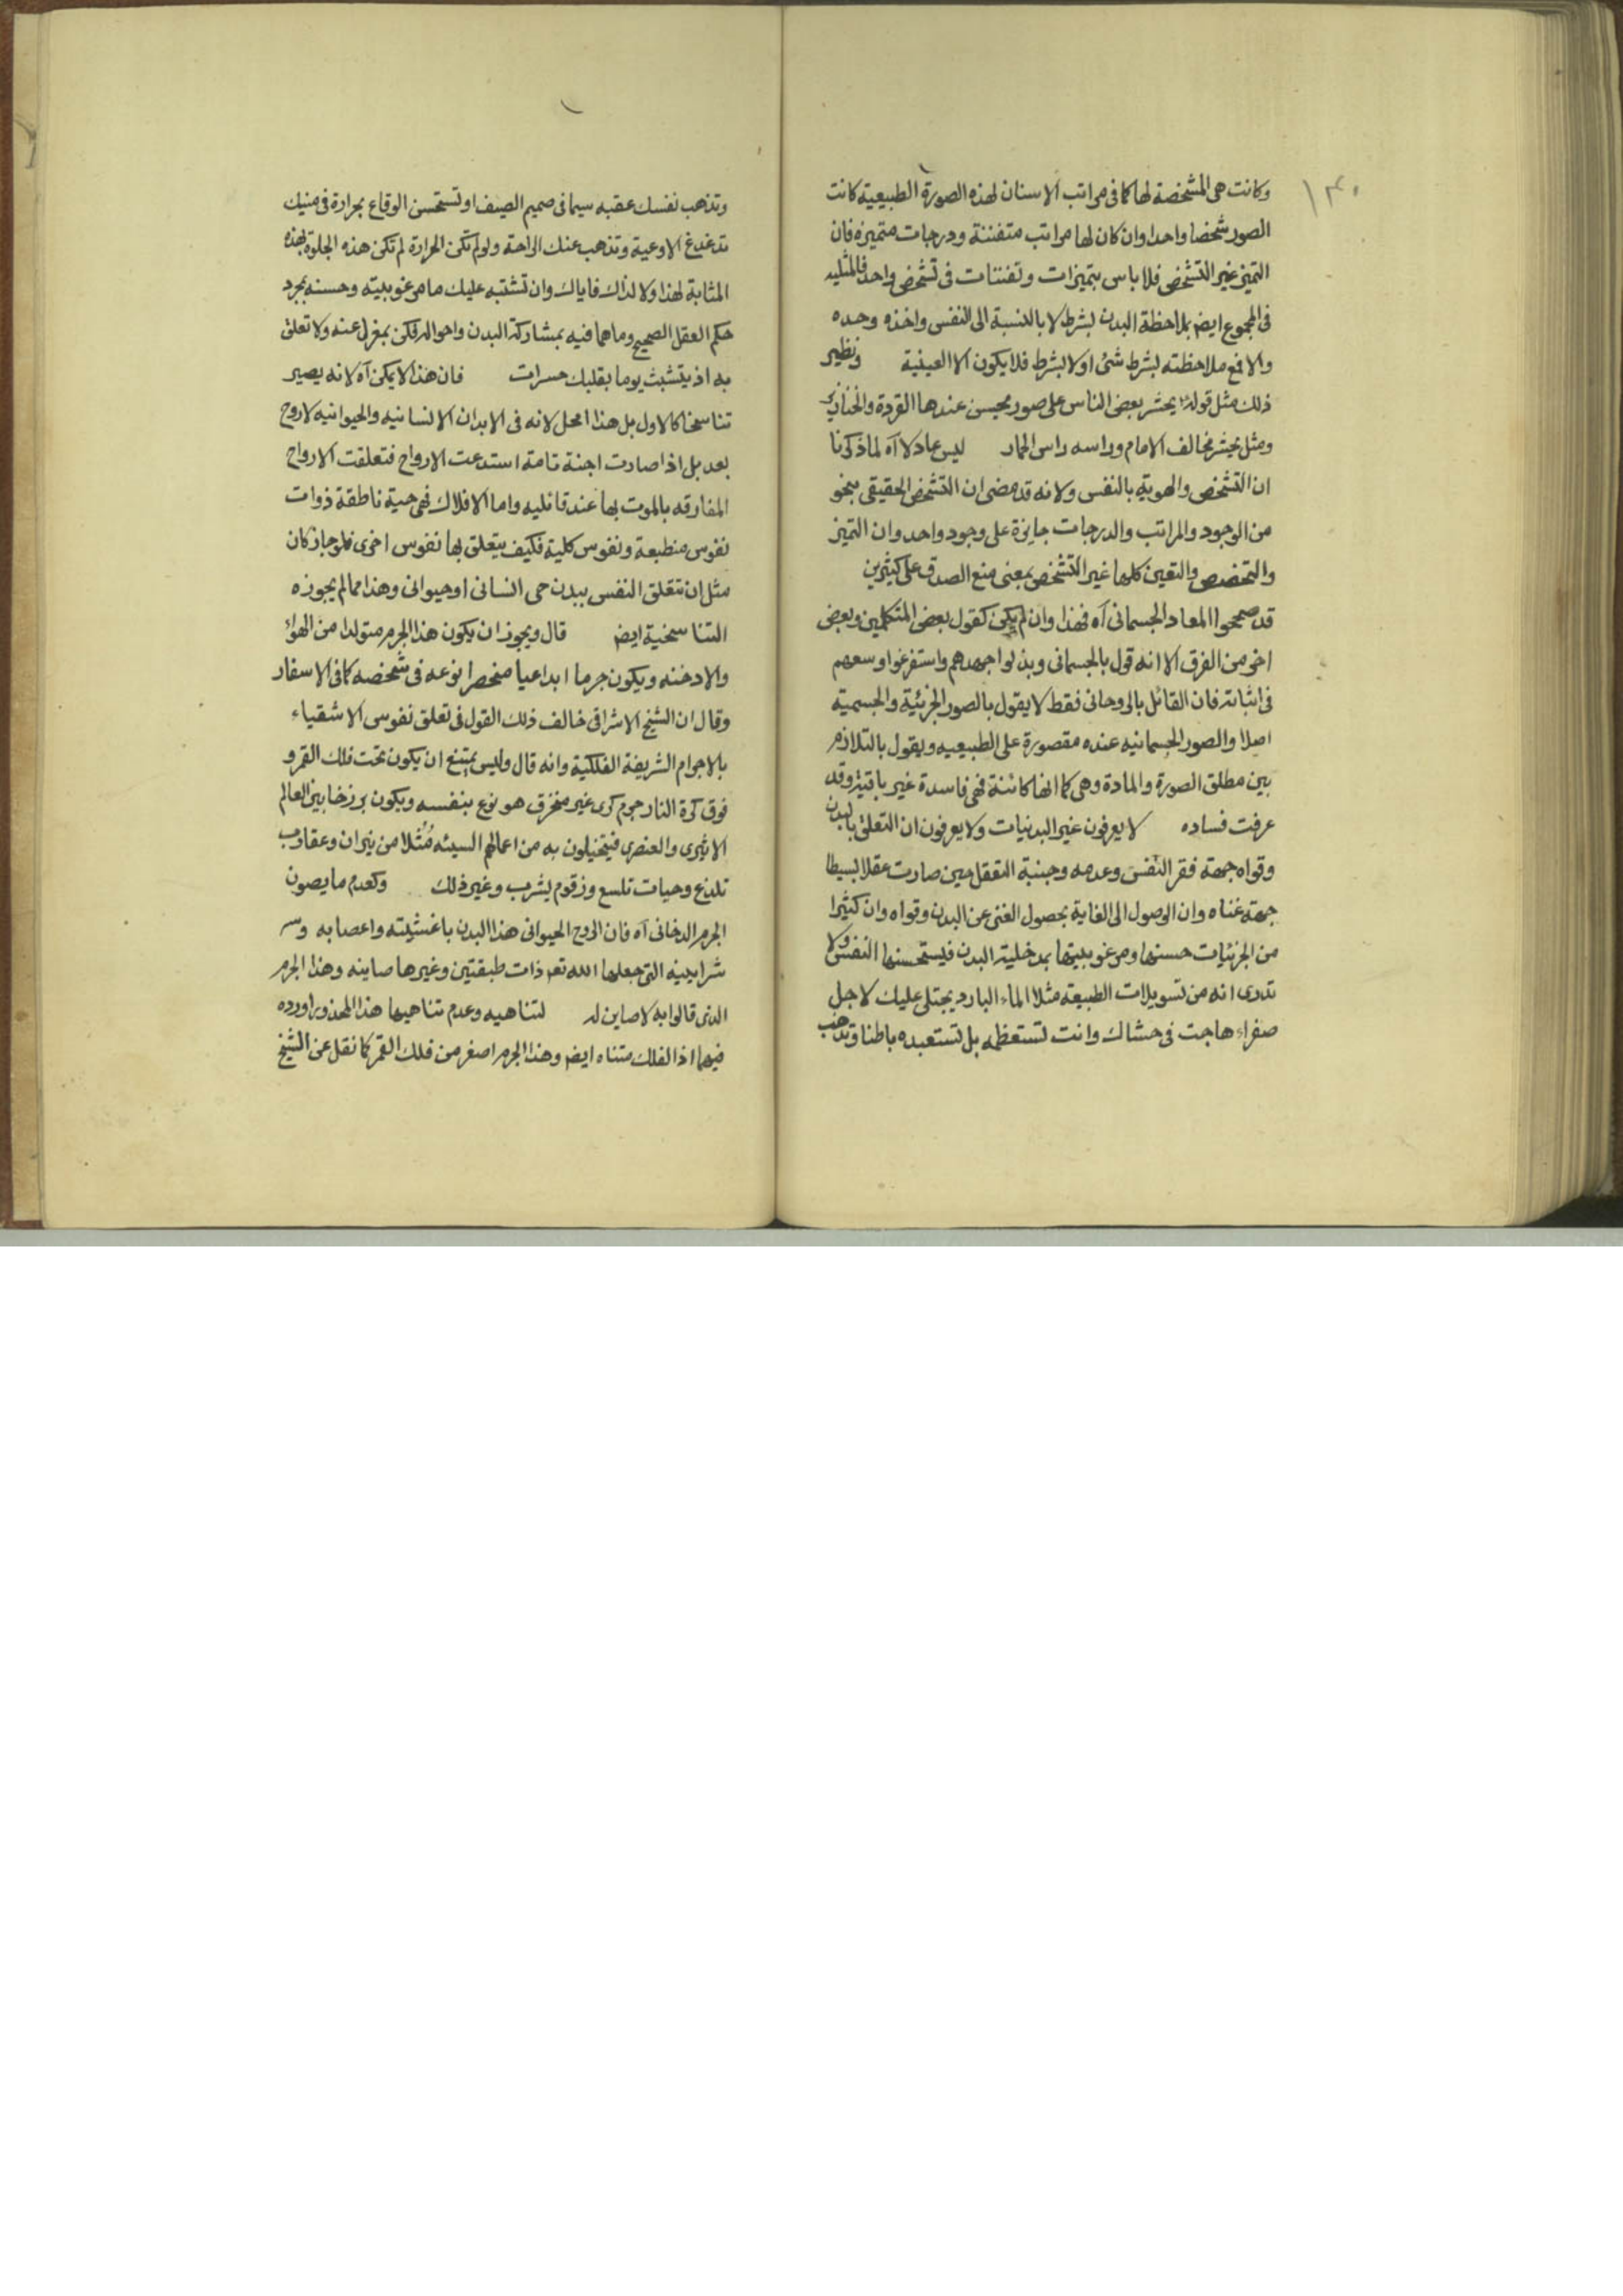 ١٣٠
وكانت هى المشخصة لها كما فى مراتب الاسنان لهذه الصورة الطبيعية كانت
الصور شخصا واحدا وان كان لها مراتب متفننة ودرجات متميزة فان
التميز غير التشخص فلا باس بتميزات وتفننات فى تشخص واحد فالمثليه
فى المجموع ايضم بملاحظة البدن بشرط لا بالنسبة الى النفس واخذه وحده
والا فمع ملاحظته بشرط شئ او لا بشرط فلا يكون الا العينية ونظير
ذلك مثل قوله يحشر بعض الناس على صور يحسن عندها القردة والخنازير
ومثل يحشر مخالف الامام وراسه راس الحمار ليس عادلا آه لما ذكرنا
ان التشخص والهوية بالنفس ولانه قد مضى ان التشخص الحقيقى بنحو
من الوجود والمراتب والدرجات جايزة على وجود واحد وان التميز
والتخصص والتعين كلها غير التشخص بمعنى منع الصدق على كثيرين
قد صححوا المعاد الجسمانى آه فهذا وان لم يكن كقول بعض المتكلمين وبعض
اخر من الفرق الا انه قول بالجسمانى وبذلوا جهدهم واستفرغوا وسعهم
فى اثباته فان القائل بالروحانى فقط لا يقول بالصور الجزئية والجسمية
اصلا والصور الجسمانيه عنده مقصورة على الطبيعيه ويقول بالتلازم
بين مطلق الصورة والمادة وهى كما انها كائنة فهى فاسدة غير باقية وقد
عرفت فساده لا يعرفون غير البدنيات ولا يعرفون ان التعلق بالبدن
وقواه جهة فقر النفس وعدمه وجنبة التعقل حين صارت عقلا بسيطا
جهة غناه وان الوصول الى الغاية بحصول الغنى عن البدن وقواه وان كثيرا
من الجزئيات حسنها ومرغوبيتها بمدخلية البدن فيستحسنها النفس ولا
تدرى انه من تسويلات الطبيعة مثلا الماء البارد يجتلى عليك لاجل
صفراء هاجت فى حشاك وانت تستعظمه بل تستعبده باطنا وتذهب
وتذهب نفسك عقبه سيما فى صميم الصيف او تستحسن الوقاع بحرارة فى منيك
تدغدغ الاوعية وتذهب عنك الراحة ولو لم تكن الحرارة لم تكن هذه الجلوة بهذه
المثابة لهذا ولا لذاك فاياك وان تشتبه عليك ما مرغوبيته وحسنه بمجرد
حكم العقل الصحيح وما هما فيه بمشاركة البدن واحواله فكن بمعزل عنه ولا تعلق
به اذ يتشبث يوما بقلبك حسرات فان هذا لا يمكن آه لانه يصير
تناسخا كالاول بل هذا امحل لانه فى الابدان الانسانيه والحيوانيه لا روح
بعد بل اذا صارت اجنة تامة استدعت الارواح فتعلقت الارواح
المفارقه بالموت بها عند قائليه واما الافلاك فهى حية ناطقة ذوات
نفوس منطبعة ونفوس كلية فكيف يتعلق بها نفوس اخرى فلو جاز كان
مثل ان تتعلق النفس ببدن حى انسانى او حيوانى وهذا مما لم يجوزه
التناسخية ايضم قال ويجوز ان يكون هذا الجرم متولدا من الهواء
والادخنه ويكون جرما ابداعيا منحصرا نوعه فى شخصه كما فى الاسفار
وقال ان الشيخ الاشراقى خالف ذلك القول فى تعلق نفوس الاشقياء
بالاجرام الشريفة الفلكية وانه قال وليس بمتنع ان يكون تحت فلك القمر و
فوق كرة النار جرم كرى غير منخرق هو نوع بنفسه ويكون برزخا بين العالم
الاثيرى والعنصرى فيتخيلون به من اعمالهم السيئه مُثُلا من نيران وعقارب
تلدغ وحيات تلسع وزقوم يشرب وغير ذلك وكعدم ما يصون
الجرم الدخانى آه فان الروح الحيوانى هذا البدن باغشيته واعصابه و
شرايينه التى جعلها الله تعم ذات طبقتين وغيرها صاينه وهذا الجرم
الذى قالوا به لا صاين له لتناهيه وعدم تناهيها هذا المحذور اورده
فيهما اذ الفلك متناه ايضم وهذا الجرم اصغر من فلك القمر كما نقل عن الشيخ